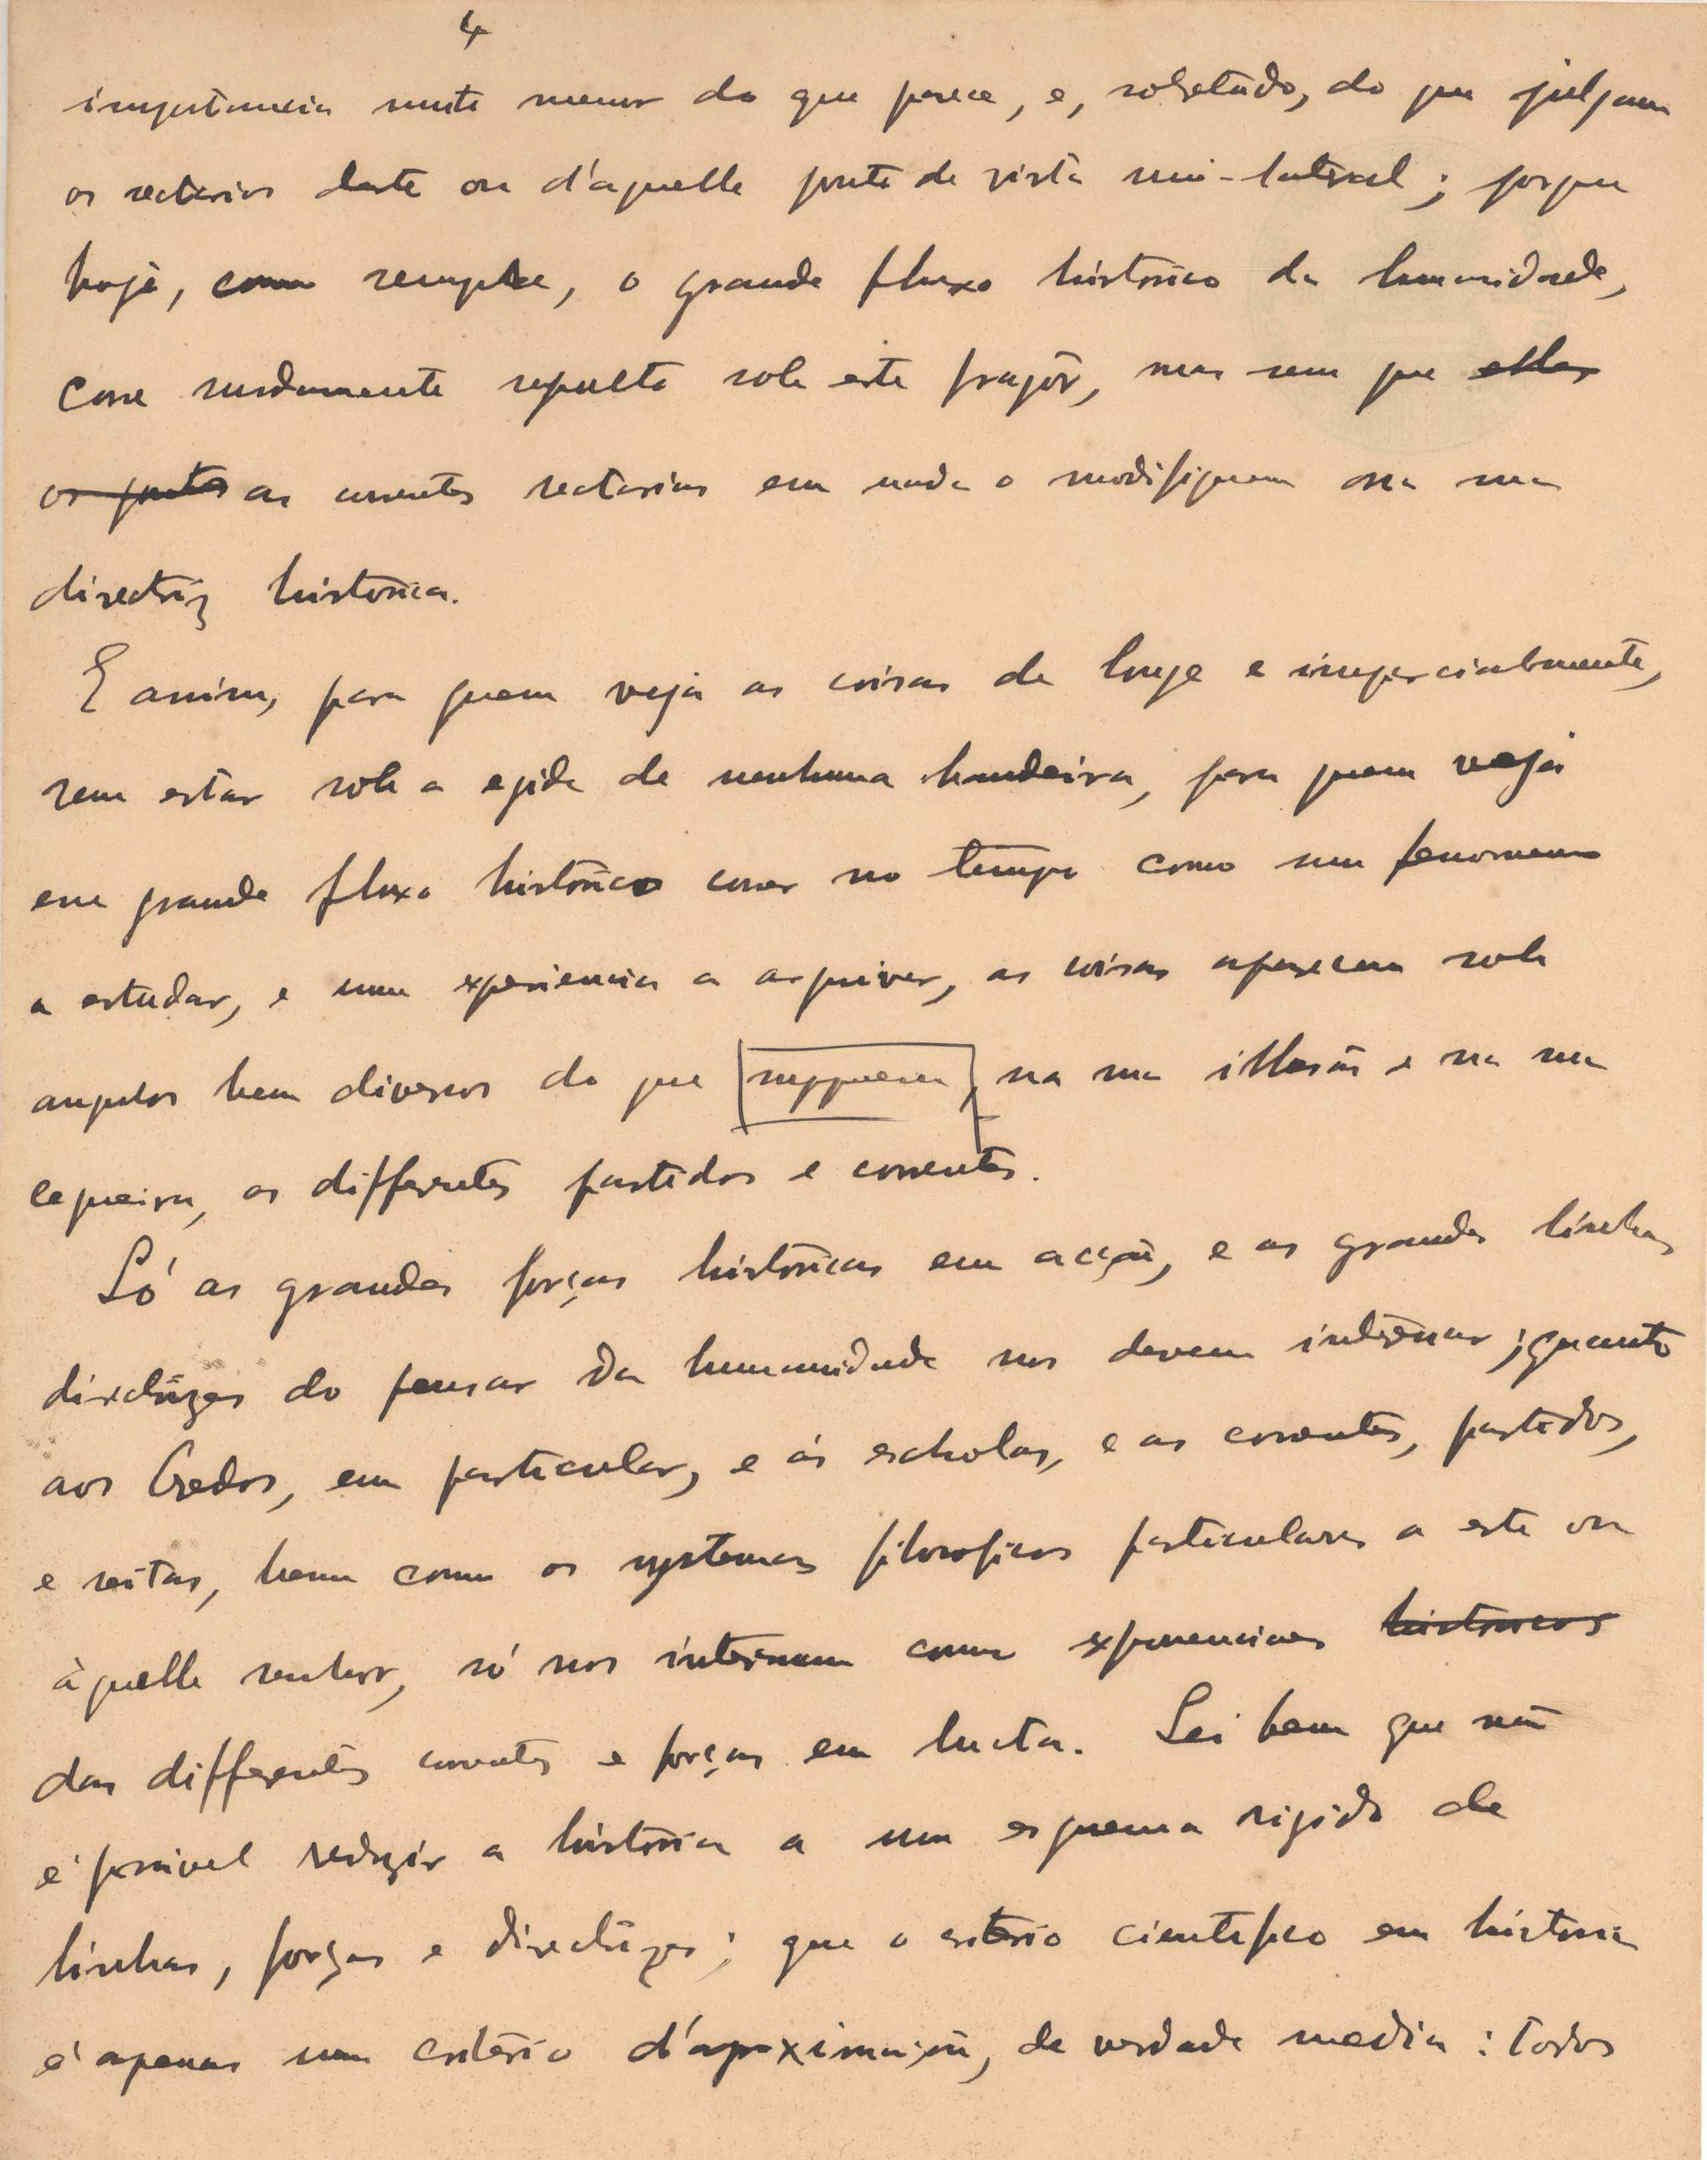 4
importancia muito menor do que parece, e, sobretudo, do que julgam
os sectarios deste ou d'aquelle ponto de vista uni-lateral; porque
hoje, como sempre, o grande fluxo historico da humanidade,
corre surdamente sepulto sob este fragôr, mas sem que ellas
os pontos as correntes sectarias em nada o modifiquem na sua
directriz historica.
E assim, para quem veja as coisas de longe e imparcialmente,
sem estar sob a egide de nenhuma bandeira, para quem veja
esse grande fluxo historico correr no tempo como um fenomeno
a estudar, e uma experiencia a arquivar, as coisas aparecem sob
angulos bem diversos do que suppoem, na sua illusão e na sua
cegueira, os differentes partidos e correntes.
Só as grandes forças históricas em acção, e as grandes linhas
directrizes do pensar da humanidade nos devem interessar; quanto
aos Credos, em particular, e ás escholas, e as correntes, partidos,
e seitas, bem como os systemas filosoficos particulares a este ou
àquelle senhor, só nos interessam como expoenciaes historicos
das differentes correntes e forças em lucta. Sei bem que não
é possivel reduzir a história a um esquema rigido de
linhas, forças e directrizes; que o criterio cientifico em historia
é apenas um critério d'aproximação, de verdade media: todos